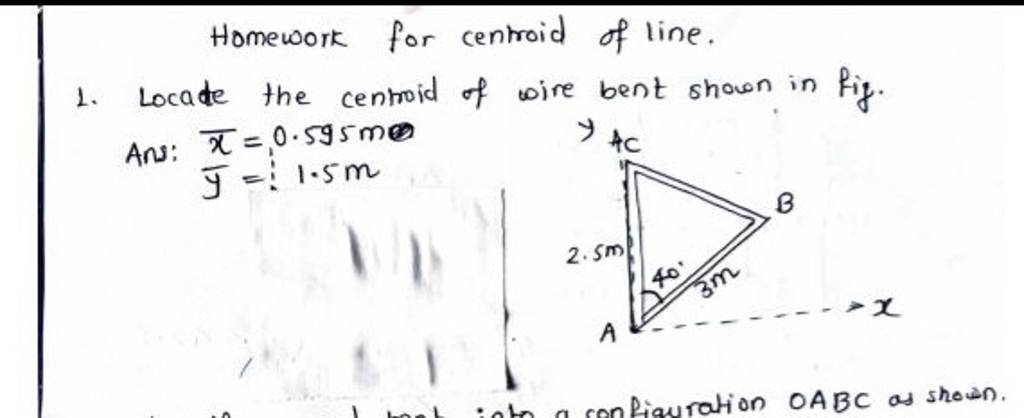 Homework for centroid of line.
1. Locade the centroid of wire bent shown in fig.
Ans: x̅ = 0.595m
y̅ = 1.5m
y
AC
B
2.5m
40°
3m
A
x
into a configuration OABC as shown.